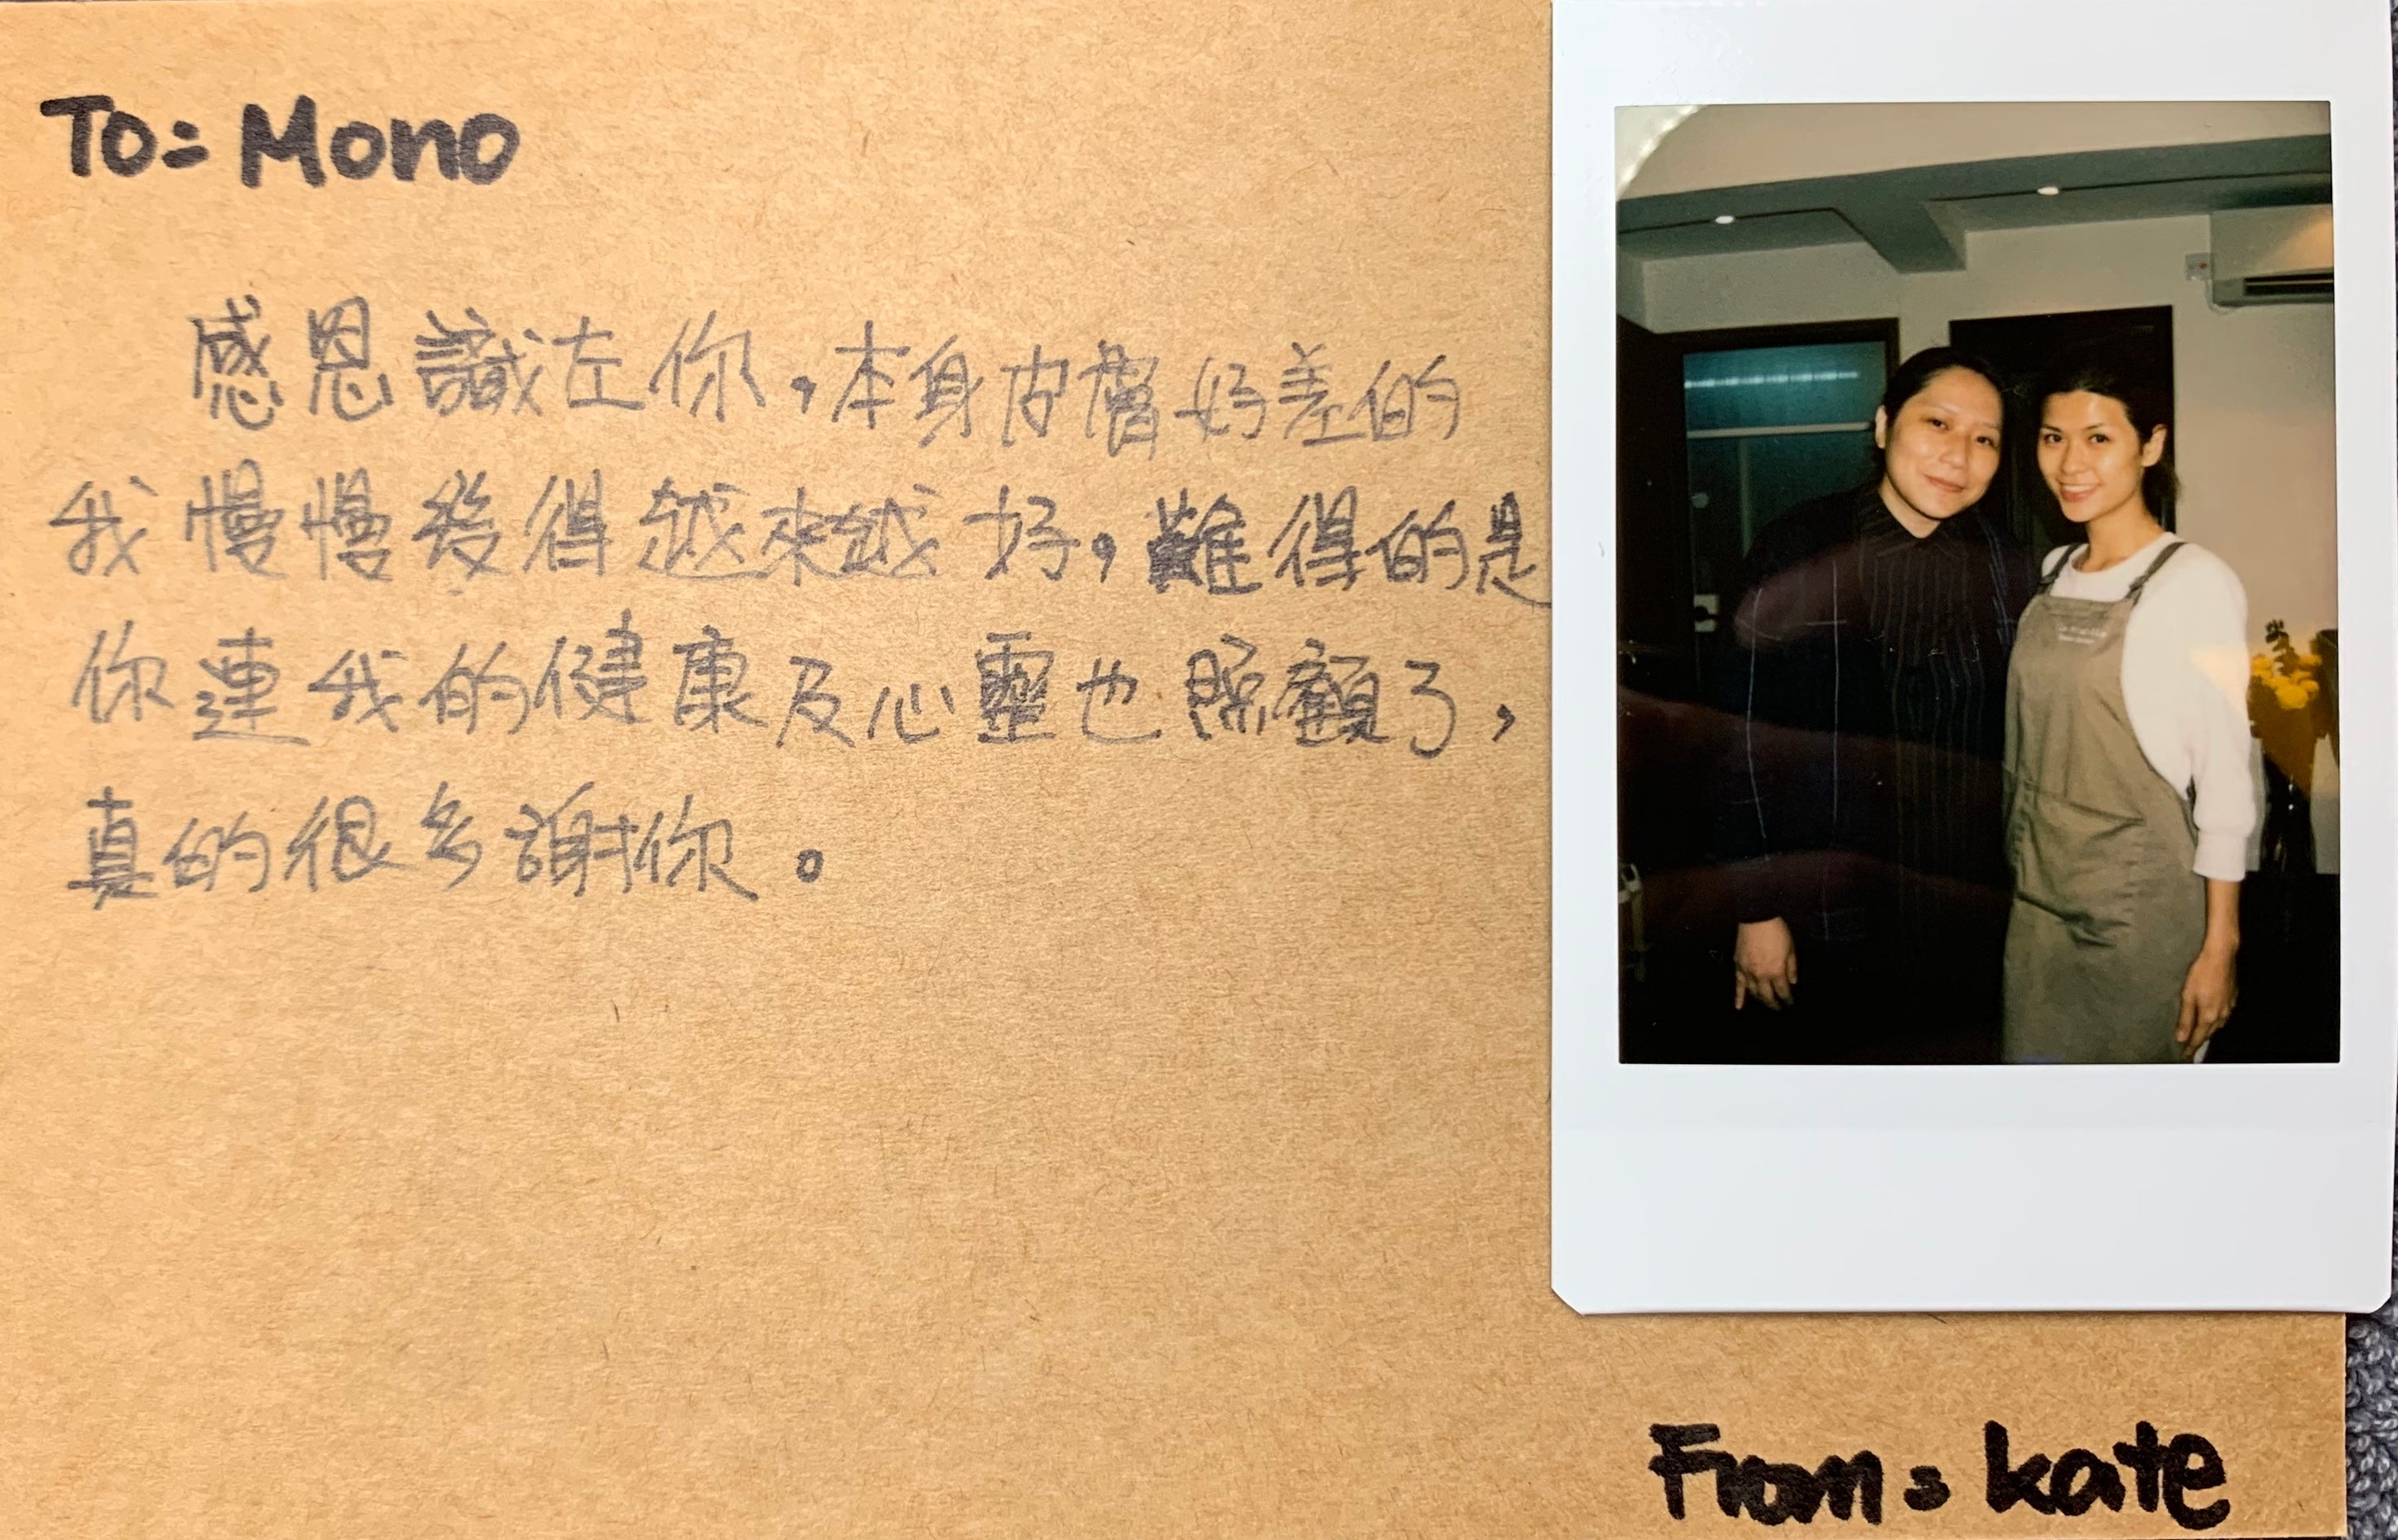 To: Mono
感恩識左你，本身皮膚好差的
我慢慢發得越來越好，難得的是
你連我的健康及心靈也照顧了，
真的很多謝你。
From: kate